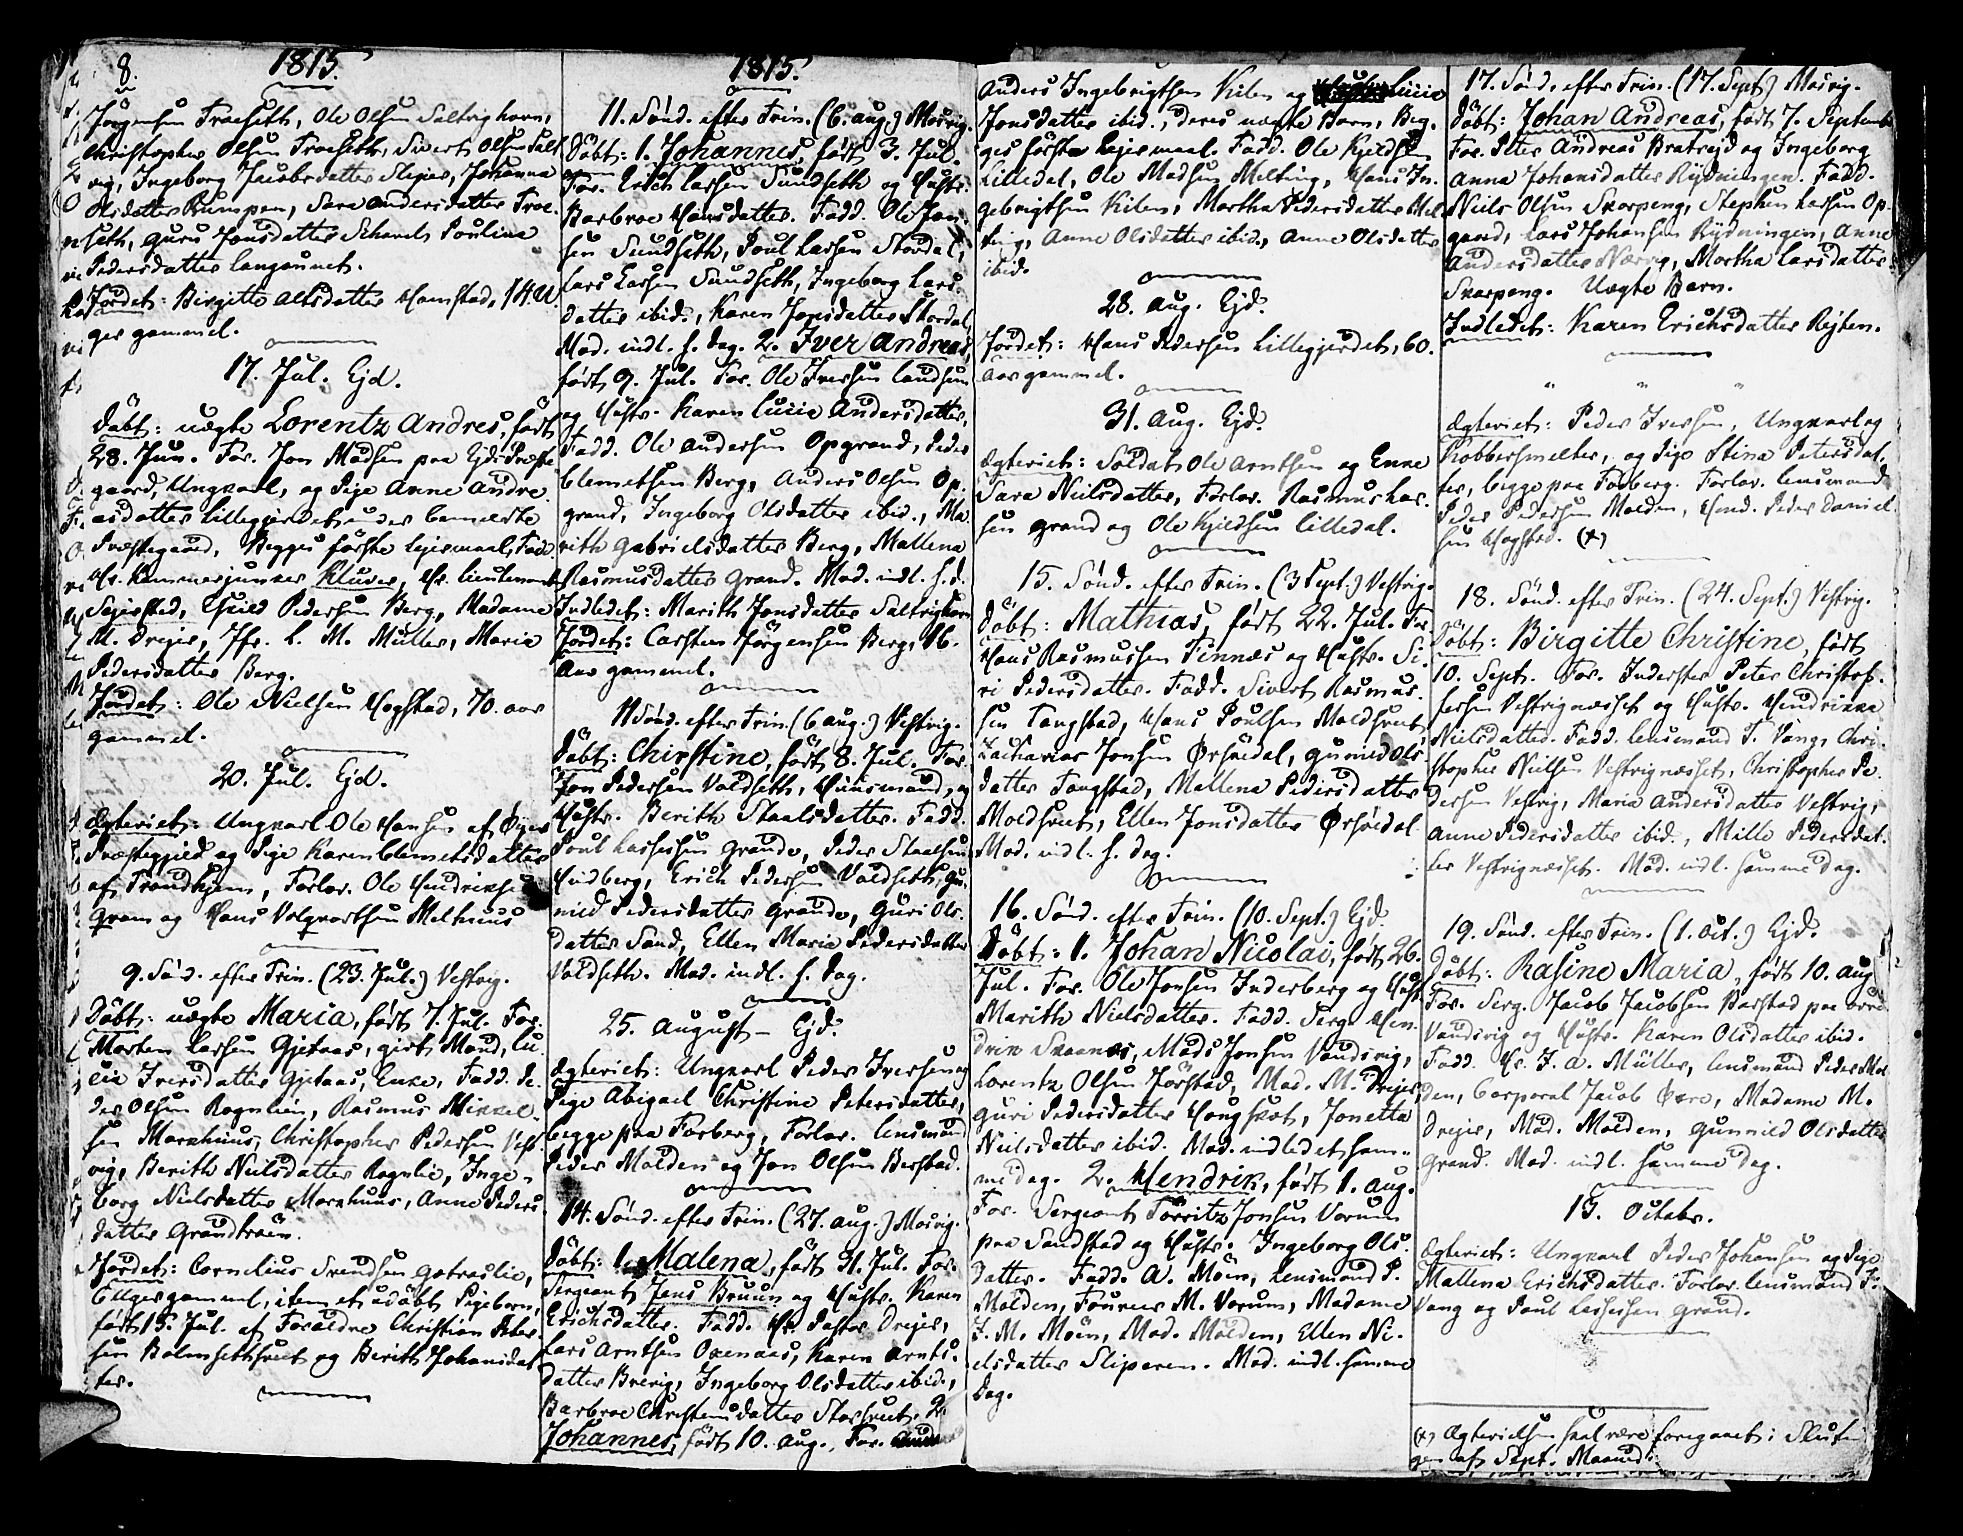 8.
1815.
Jörgensen Troeseth, Ole Olsen Saltvighavn,
Christopher Olsen Troeseth, Sivert Olsen Salt
vig, Ingeborg Jacobsdatter Slejer, Johanna
Olsdatter Rumpen, Sara Andersdatter Troe-
seth, Guru Jonsdatter Paulina
Pedersdatter Langaunet.
Jordet: Birgitte Olsdatter Hamstad, 14. U
ger gammel.
17. Jul. Ejd.
Döbt: uægte Lorentz Andres, født
28. Jun. For. Jon Madsen paa Ejd. Præste
gaard, Ungkarl, og Pige Anne Andre
asdatter Lillegjerdet under bemeldte
Præstegaard, Begges første Lejermaal, Fadd.
Hr. Kammerjunker Klüver, Hr. Lieutenant
Sejersted, Eskild Pedersen Berg, Madame
M. Drejer, Jfr. L. M. Müller, Maria
Pedersdatter Berg.
Jordet: Ole Nielsen Hogstad, 70. aar
gammel.
20. Jul. Ejd.
Ægteviet: Ungkarl Ole Hansen af Öyer
Præstegjeld og Pige Karen Clemetsdatter
af Trondhjem, Forlov. Ole Hendriksen
Gram og Hans Volqvartsen Melhuus
9. Sønd. efter Trin. (23. Jul.) Vestvig.
Döbt: uægte Maria, født 7. Jul. For.
Morten Larsen Gjetaas, gift Mand, Lu-
cie Iversdatter Gjetaas, Enke, Fadd. Pe-
der Olsen Rognlien, Rasmus Mikkel-
sen Markhuus, Christopher Pedersen Vest
vig, Berith Nielsdatter Rognlie, Inge-
borg Nielsdatter Markhuus, Anne Peders
datter Grandtrøen.
Jordet: Cornelius Svendsen Gotvaslie,
Uger gammel, item et udøbt Pigebarn,
født 15. Jul. af Forældre Christian Peter-
sen Bolmsethhvet og Berith Johansdat
ter.
1815.
11. Sønd. efter Trin. (6. aug.) Mosvig.
Döbt: 1. Johannes, født 3. Jul.
For. Erich Larsen Sundseth og Hustr.
Barbroe Hansdatter. Fadd. Ole Han-
sen Sundseth, Poul Larsen Stordal,
Lars Larsen Sundseth, Ingeborg Lars-
datter ibid., Karen Jonsdatter Stordal,
Mod. indl. s. dag. 2. Iver Andreas,
født 9. Jul. For. Ole Iversen Landsem
og Hustr. Karen Lucia Andersdatter,
Fadd. Ole Andersen Opgrand, Peder
Clemetsen Berg, Anders Olsen Op-
grand, Ingeborg Olsdatter ibid., Ma
rith Gabrielsdatter Berg, Mallena
Rasmusdatter Grand. Mod. indl. s. d.
Indledet: Marith Jonsdatter Saltvighavn
Jordet: Carsten Jörgensen Berg, 16.
Aar gammel.
11 Sønd. efter Trin. (6 aug.) Vestvig.
Döbt: Chirstine, født 8. Jul. For.
Jon Pedersen Valdseth, Huusmand, og
Hustr. Berith Staalsdatter. Fadd.
Poul Lassesen Grande, Peder Staalsen
Hindberg, Erich Pedersen Valdseth, Gu-
nild Pedersdatter Grande, Guri Ols-
datter Sand, Ellen Maria Pedersdatter
Valdseth. Mod. indl. s. Dag.
25. August - Ejd.
Ægteviet: Ungkarl Peder Iversen og
Pige Abigael Christine Petersdatter,
begge paa Farberg, Forlov. Lensmand
Peder Molden og Jon Olsen Berstad.
14. Sønd. efter Trin. (27. aug.) Mosvig.
Döbt: 1. Malena, født 31. Jul. For.
Sergeant Jens Bruun og Hustr. Karen
Erichsdatter. Fadd. Hr. Pastor Drejer,
Lars Arntsen Oxenaas, Karen Arnts-
datter Brevig, Ingeborg Olsdatter ibid.,
Barbroe Christensdatter Storhvet. 2.
Johannes, født 10. aug., For.
Anders Ingebrigtsen Kilen og Lucia
Jonsdatter ibid., deres uægte Barn, Beg-
ges første Lejermaal. Fadd. Ole Kjeldsen
Lilledal, Ole Madsen Melting, Hans In-
gebrigtsen Kilen, Martha Pedersdatter Mel
ting, Anne Olsdatter ibid., Anne Olsdatter
ibid.
28. Aug. Ejd.
Jordet: Hans Pedersen Lillegjerdet, 60.
Aar gammel.
31. Aug. Ejd.
Ægteviet: Soldat Ole Arntsen og Enke
Sara Nielsdatter, Forlov. Rasmus Lar-
sen Grand og Ole Kjeldsen Lilledal.
15. Sønd. efter Trin. (3 Sept.) Vestvig.
Döbt: Mathias, født 22. Jul. For
Hans Rasmussen Finnæs og Hustr. Si-
ri Pedersdatter. Fadd. Sivert Rasmus-
sen Tangstad, Hans Poulsen Moldhvet
Zacharias Jonsen Ørsjødal, Gunild Ols
datter Tangstad, Mallena Pedersdatter
Moldhvet, Ellen Jonsdatter Ørsjødal
Mod. indl. s. dag.
16. Sønd. efter Trin. (10. Sept.) Ejd.
Döbt: 1. Johan Nicolai, født 26.
Jul. For. Ole Jonsen Inderberg og Hust
Marith Nielsdatter. Fadd. Serg. Hen-
drik Skaanes, Mads Jonsen Vandvig,
Lorentz Olsen Jørstad, Mad. M. Drejer
Guri Pedersdatter Haugskot, Jonetta
Nielsdatter ibid. Mod. indledet sam-
me dag. 2. Hendrik, født 1. aug.
For. Sergeant Torritz Jonsen Vorum
paa Sandstad og Hustr. Ingeborg Ols-
datter. Fadd. A. Möin, Lensmand P.
Molden, Fourer M. Vorum, Madame
J. M. Möin, Mad. Molden, Ellen Ni-
elsdatter Sliperen. Mod. indl. samme
Dag.
17. Sønd. efter Trin. (17. Sept) Mosvig.
Döbt: Johan Andreas, født 7. Septembr
For. Peter Andreas Bratrejd og Ingeborg
Anna Johansdatter Rydningen. Fadd.
Niels Olsen Skarpeng, Stephen Larsen Op-
gand, Lars Johansen Rydningen, Anne
Andersdatter Nærvig, Martha Larsdatter
Skarpeng. Uægte Barn.
Indledet: Karen Erichsdatter Rejten.
" " "
Ægteviet: Peder Iversen, Ungkarl og
Kobbersmelter, og Pige Stina Petersdat-
ter, begge paa Farberg. Forlov. Lensmand
Peder Pedersen Molden, Hend. Peder Daniel-
sen Hogstad. (x)
18. Sønd. efter Trin. (24. Sept.) Vestvig.
Döbt: Birgitte Christine, født
10. Sept. For. Inderster Peter Christof-
fersen Vestvignesset og Hustr. Hendrikka
Nielsdatter. Fadd. Lensmand T. Vang, Chri-
stopher Nielsen Vestvignæsset, Christopher Pe-
dersen Vestvig, Maria Andersdatter Vestvig,
Anne Pedersdatter ibid., Mille Pedersdat-
ter Vestvignæsset. Mod. indl. samme Dag.
19. Sønd. efter Trin. (1. Oct.) Ejd.
Döbt: Rasine Maria, født 10. aug
For. Serg. Jacob Jacobsen Barstad paa
Vandvig og Hustr. Karen Olsdatter ibid.
Fadd. Hr. J. A. Müller, Lensmand Peder Mol
den, Corporal Jacob Øvre, Madame M.
Drejer, Mad. Molden, Gunnild Olsdatter
Grand. Mod. indl. samme Dag.
15. Octobr.
Ægteviet: Ungkarl Peder Johansen og Pige
Mallena Erichsdatter. Forlov. Lensmand T.
Vang og Poul Lassesen Grand.
(x) Ægtevielsen skal være foregaaet i Slutnin
gen af Sept. Maaned.